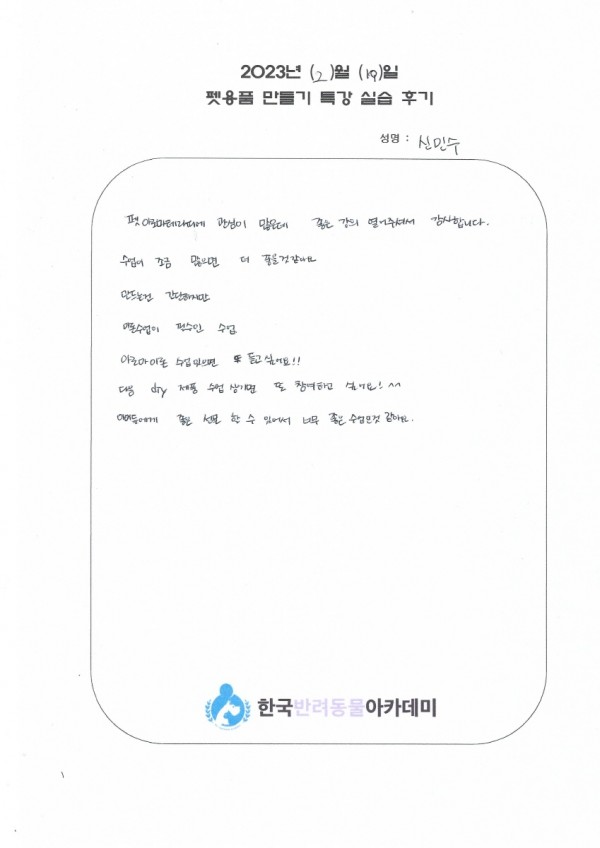 2023년 (2)월 (19)일
펫용품 만들기 특강 실습 후기
성명 : 신민수
펫 아로마테라피에 관심이 많은데 좋은 강의 열어주셔서 감사합니다.
수업이 조금 많으면 더 좋을것같아요
만드는건 간단하지만
이론수업이 필수인 수업
아로마이론 수업있으면 또 듣고 싶어요!!
다음 diy 제품 수업 생기면 또 참여하고 싶어요! ^^
좋은 선물 할 수 있어서 너무 좋은 수업인것 같아요.
한국반려동물아카데미